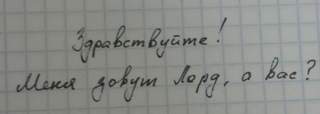 Здравствуйте!
Меня зовут Лорд, а вас?